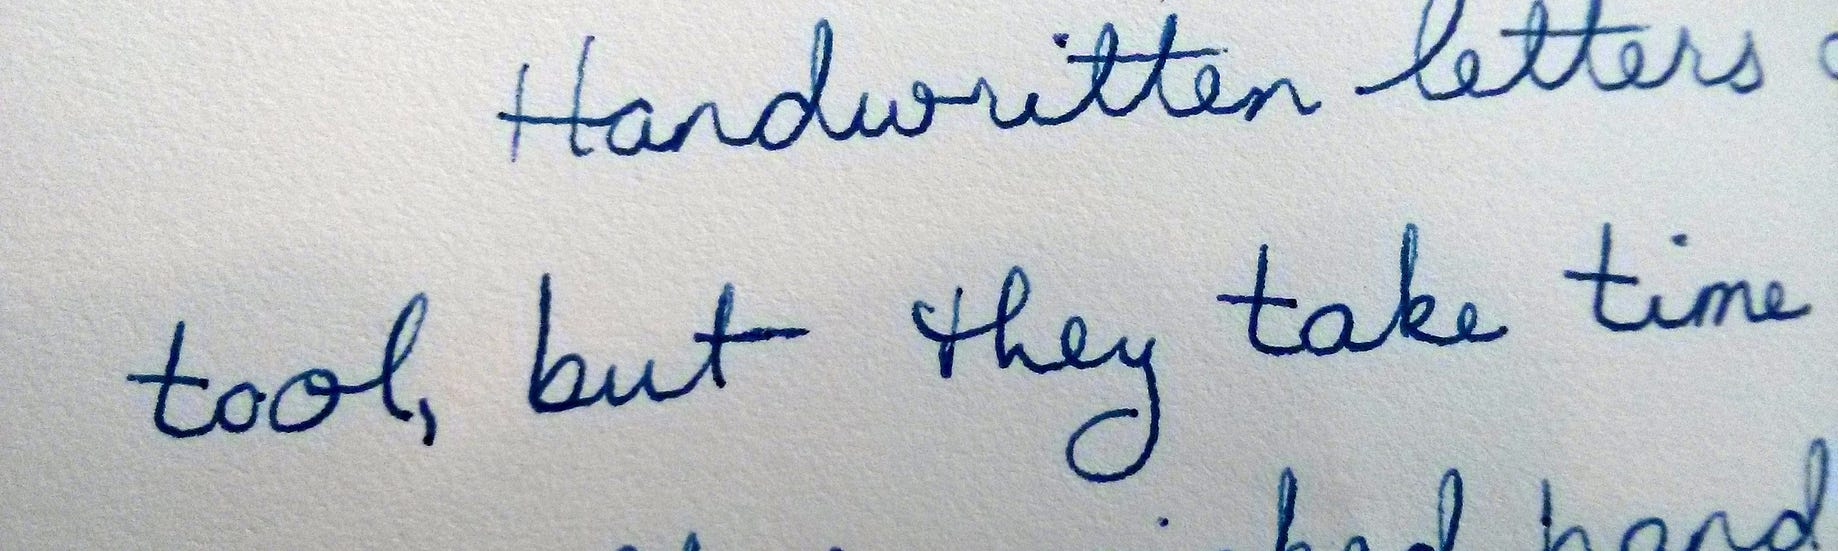 Handwritten letters
tool, but they take time
had hand